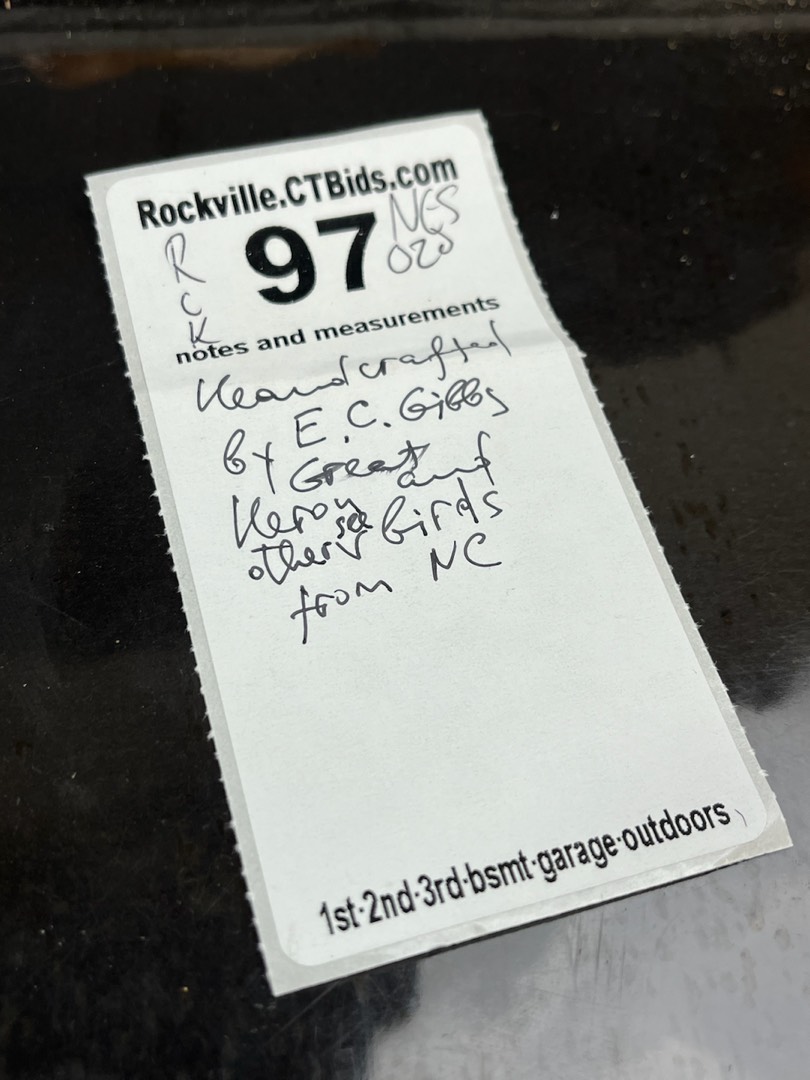 Rockville.CTBids.com
R
C
K
97
NES
028
notes and measurements
Handcrafted
by E.C. Gibbs
Great and
Heron
other sea birds
from NC
1st·2nd·3rd·bsmt·garage·outdoors